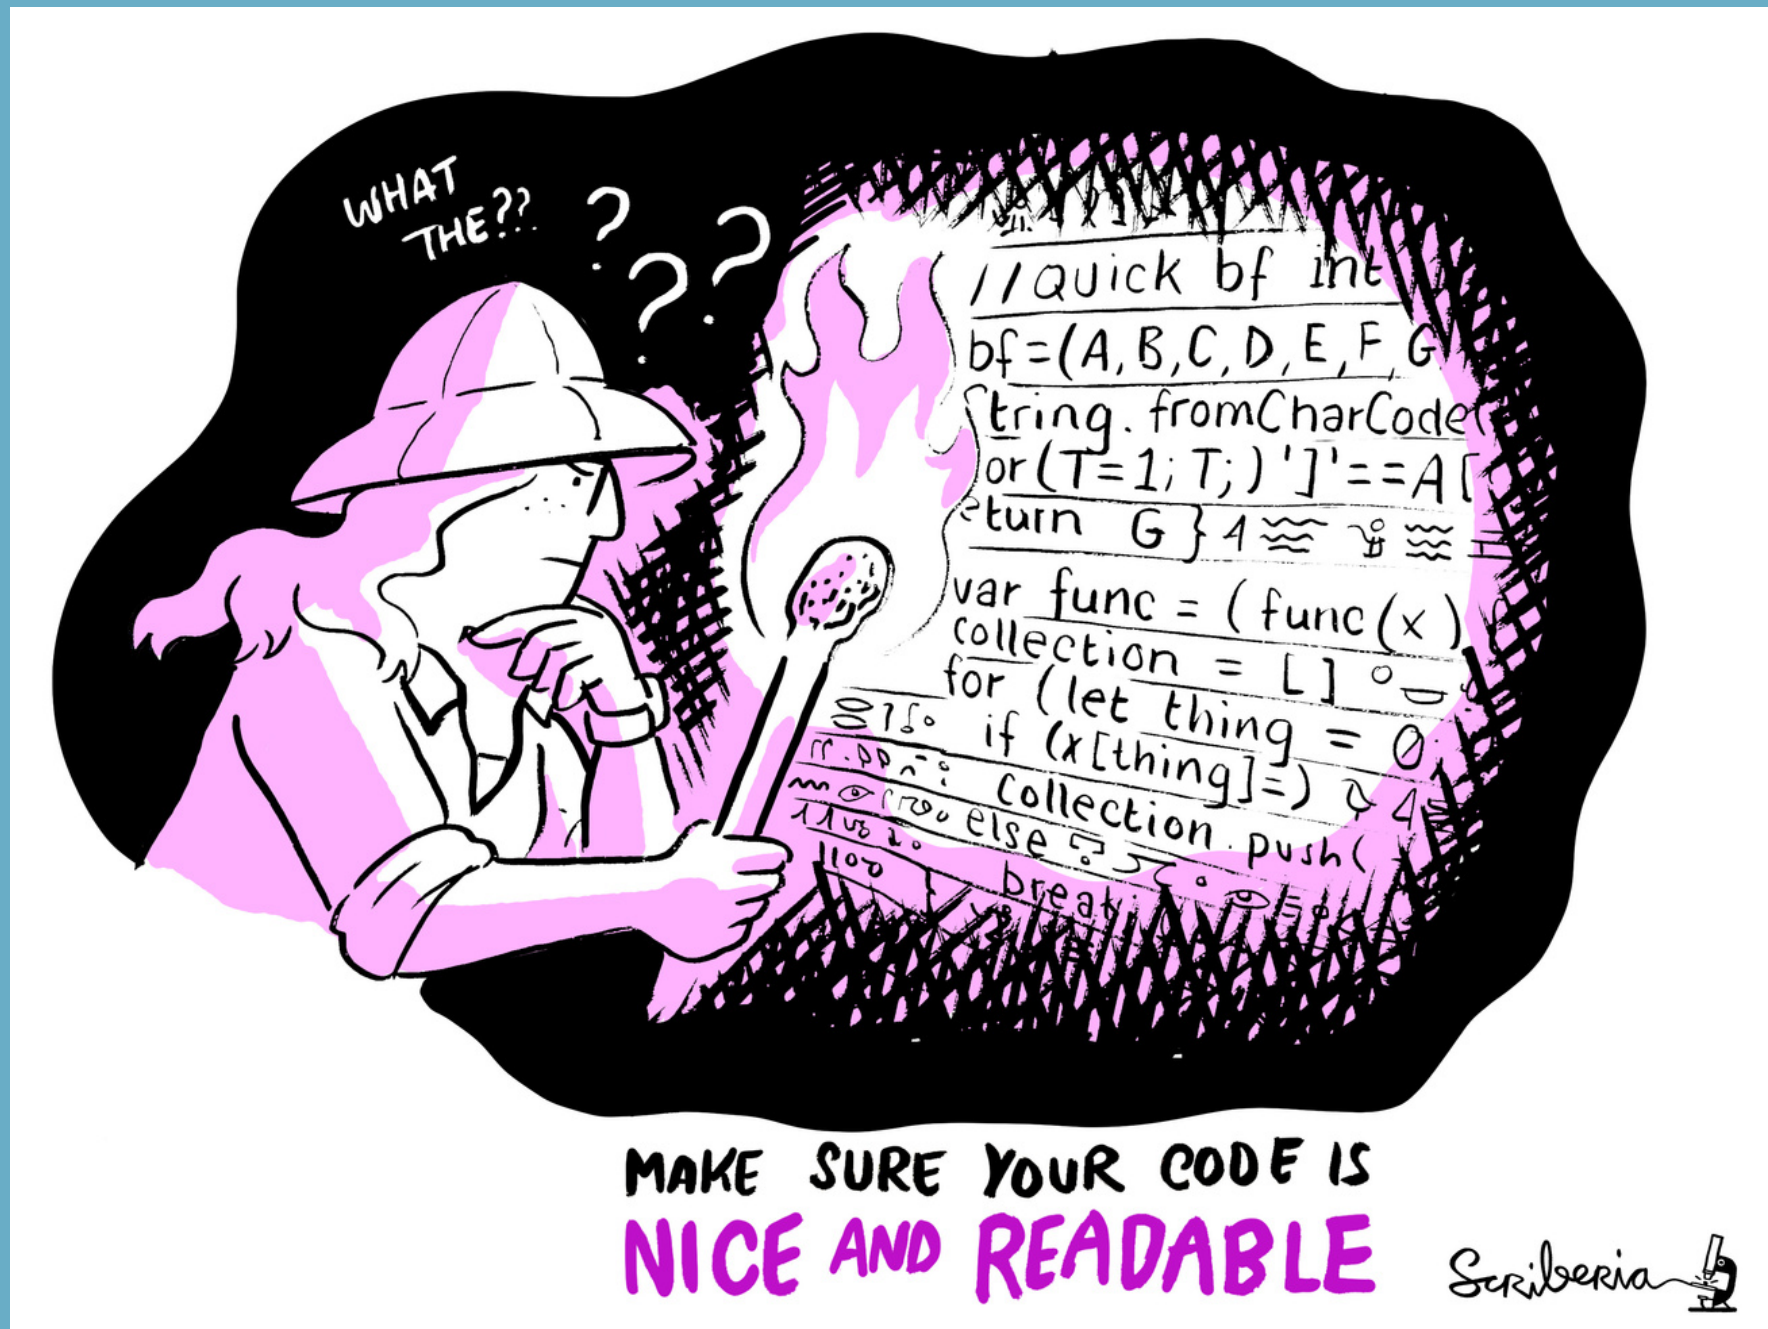 WHAT
THE??
? ? ?
//QUICK bf int
bf=(A,B,C,D,E,F,G
tring.fromCharCode(
or(T=1;T;)']'==A[
eturn G}
var func = (func(x)
collection = []
for (let thing = 0
if (x[thing]=)
collection.push(
else
break
MAKE SURE YOUR CODE IS
NICE AND READABLE
Scriberia